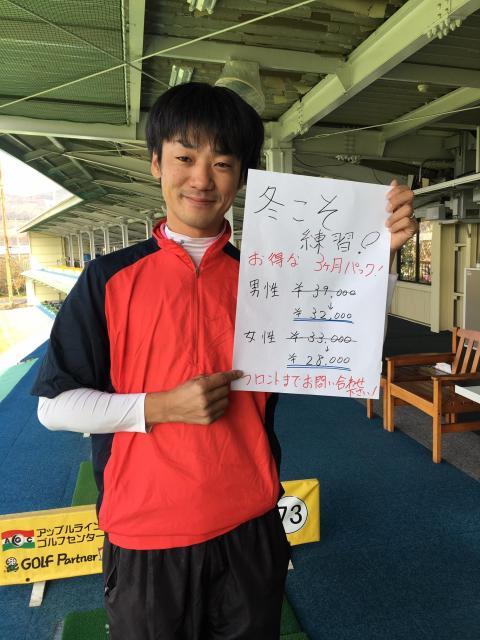 冬こそ
練習!?
お得な 3ヶ月パック!
男性 ¥39,000
↓
¥32,000
女性 ¥33,000
↓
¥28,000
フロントまでお問い合わせ
下さい!
アップルライン
ゴルフセンター
AGC
GOLF Partner
73